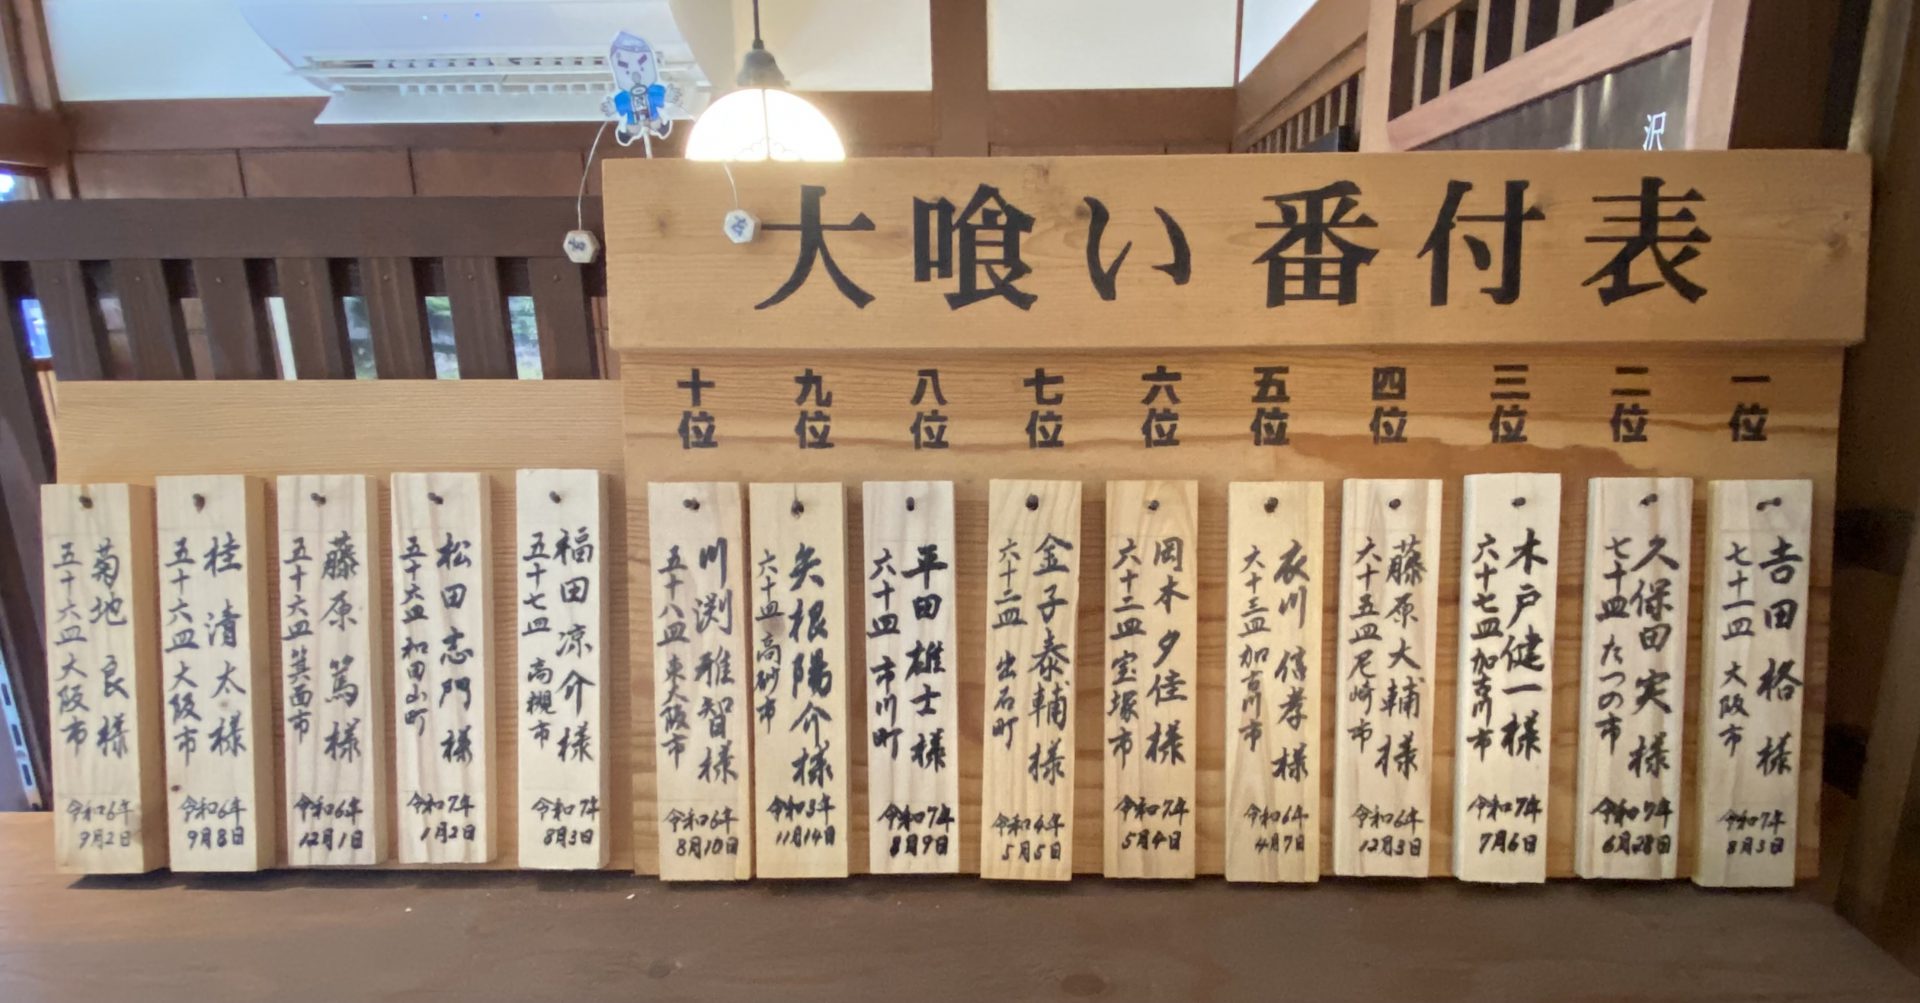 沢
大喰い番付表
一位
吉田 格 様
七十一皿 大阪市
令和7年
8月3日
二位
久保田実様
七十皿 たつの市
令和7年
6月28日
三位
木戸健一様
六十七皿 加古川市
令和7年
7月6日
四位
藤原大輔様
六十五皿 尼崎市
令和6年
12月3日
五位
衣川信孝様
六十三皿 加古川市
令和6年
4月7日
六位
岡本夕佳様
六十二皿 宝塚市
令和7年
5月4日
七位
金子泰輔様
六十二皿 出石町
令和4年
5月5日
八位
平田雄士様
六十皿 市川町
令和7年
8月9日
九位
矢根陽介様
六十皿 高砂市
令和3年
11月14日
十位
川渕雅智様
五十八皿 東大阪市
令和6年
8月10日
福田涼介様
五十七皿 高槻市
令和7年
8月3日
松田志門様
五十六皿 和田山町
令和7年
1月2日
藤原篤様
五十六皿 箕面市
令和6年
12月1日
桂 清太様
五十六皿 大阪市
令和6年
9月8日
菊地 良様
五十六皿 大阪市
令和6年
9月2日